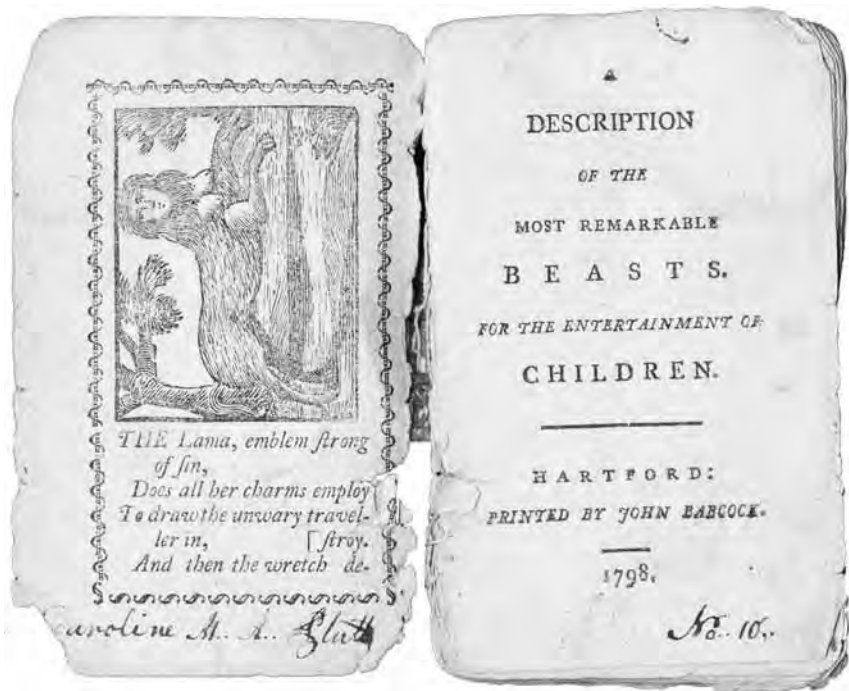 THE Lama, emblem ſtrong
of ſin,
Does all her charms employ
To draw the unwary travel-
ler in, [ſtroy.
And then the wretch de-
Caroline M. A.
A
DESCRIPTION
OF THE
MOST REMARKABLE
BEASTS.
FOR THE ENTERTAINMENT OF
CHILDREN.
HARTFORD:
PRINTED BY JOHN BABCOCK.
1798.
No. 10.